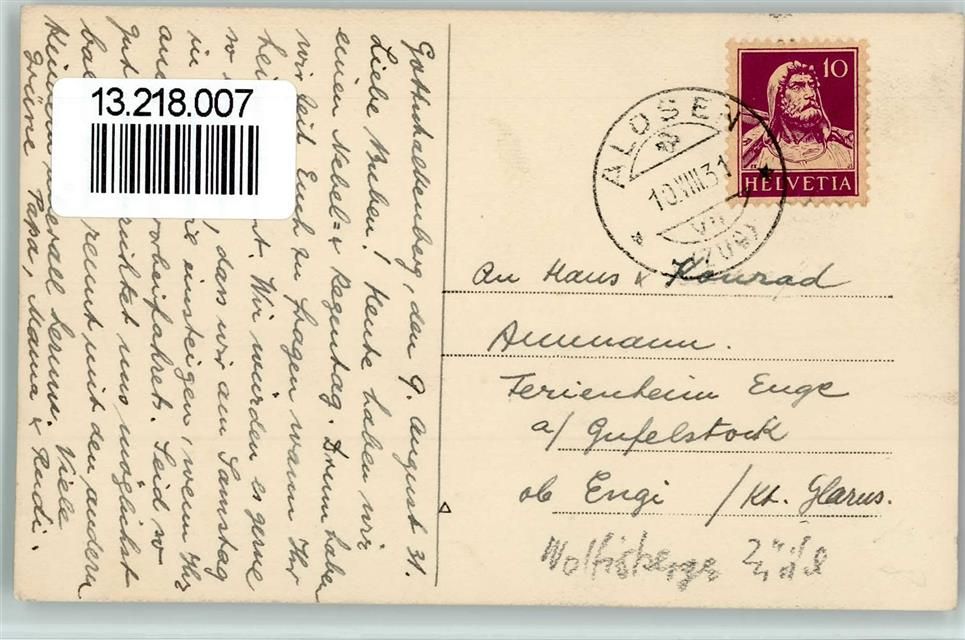 13.218.007
Gottschalkenberg, den 9. August 31.
Liebe Buben! Heute haben wir
einen Nebel- & Regentag. Drum haben
wir Zeit Euch zu fragen wann Ihr
hei t. Wir würden es gerne
so , dass wir am Samstag
in il einsteigen, wenn Ihr
an vorbeifahret. Seid so
gut & schriebet uns möglichst
bal rennt mit den andern
überall herum. Viele
Grüsse Papa, Mama & Ruedi.
ALOSEN
10.VIII.31
VII
(ZUG)
10
HELVETIA
An Hans & Konrad
Ammann.
Ferienheim Enge
a/ Gufelstock
ob Engi / Kt. Glarus.
Wolfisberger